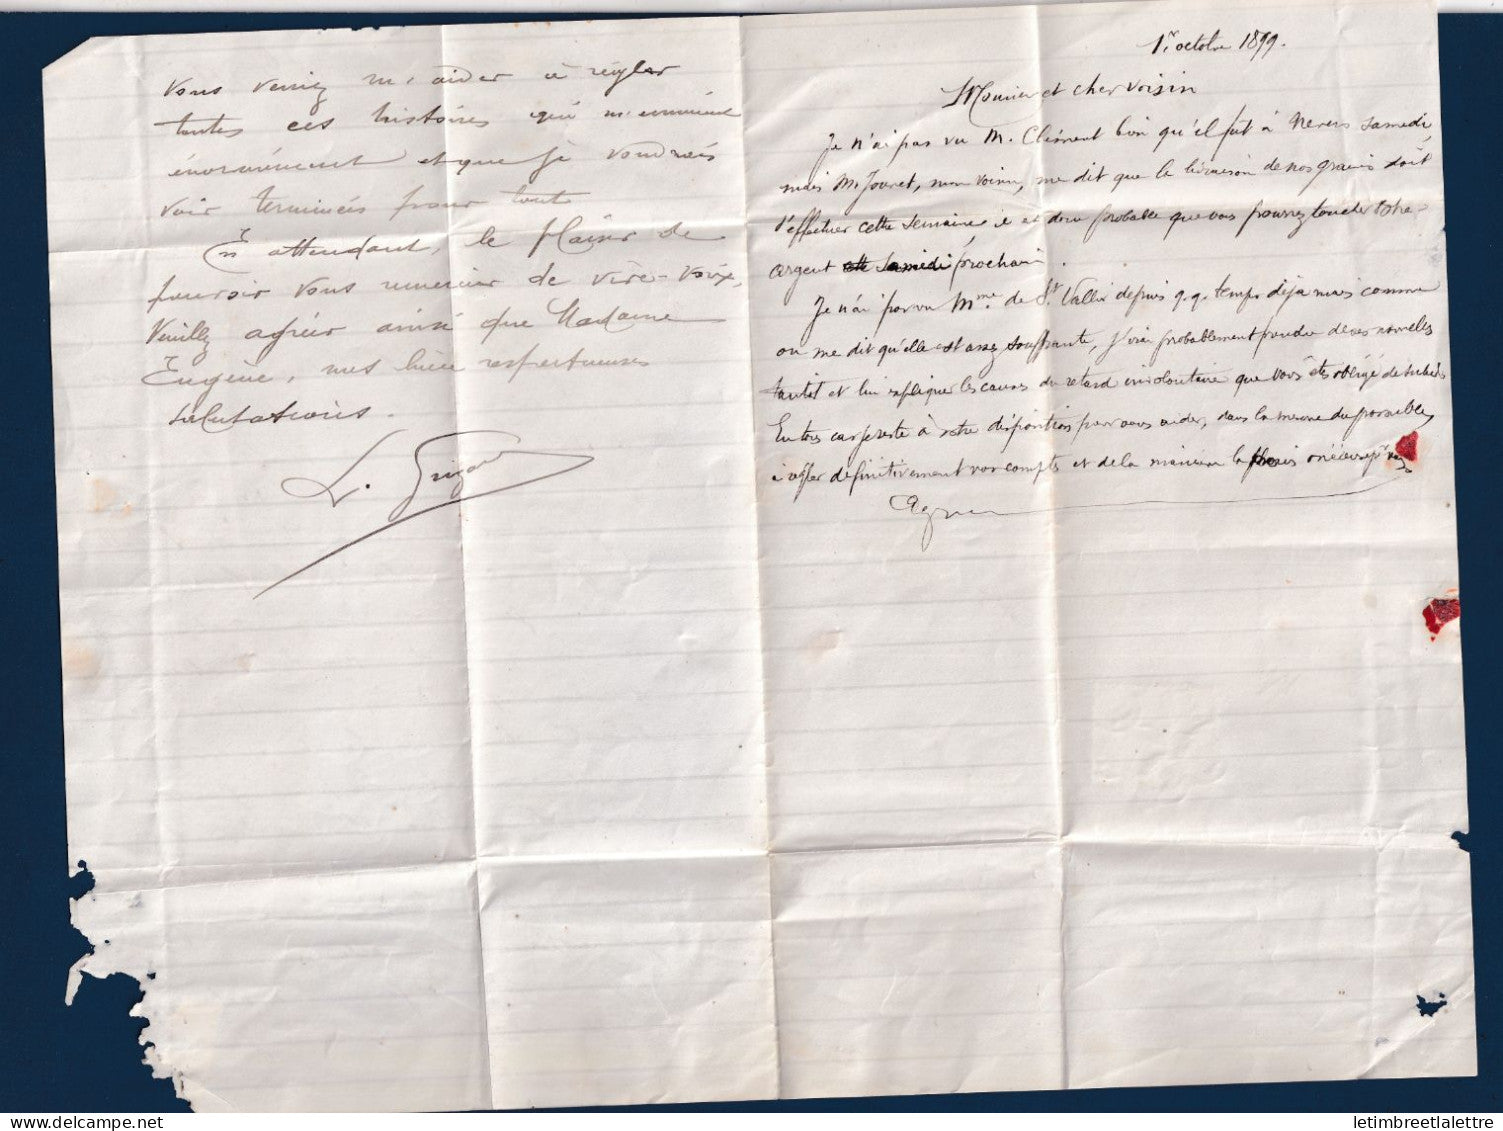 vous veniez m'aider à régler
toutes ces histoires qui m'ennuient
énormément et que je voudrais
voir terminées pour tout
En attendant, le plaisir de
pouvoir vous remercier de vive-voix,
Veuillez agréer ainsi que Madame
Eugène, mes bien respectueuses
salutations.
L.
1er octobre 1899.
Monsieur et cher voisin
Je n'ai pas vu M. Clément bien qu'il fut à Nevers samedi,
mais M. Jouret, mon voisin, me dit que la livraison de nos grains doit
s'effectuer cette semaine, il est donc probable que vous pourrez toucher votre
argent samedi prochain.
Je n'ai pas vu Mme de St Vallier depuis q.q. temps déjà mais comme
on me dit qu'elle est assez souffrante, j'irai probablement prendre de ses nouvelles
tantôt et lui expliquer les causes du retard involontaire que vous êtes obligé de subir
En tous cas je reste à votre disposition pour vous aider, dans la mesure du possible,
à régler définitivement vos comptes et de la manière la
letimbreetlalettre